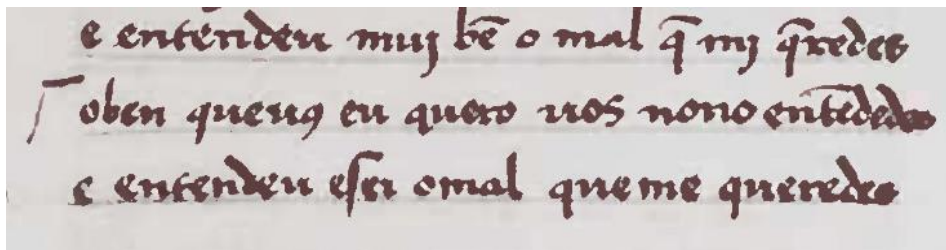 e entendeu muy bẽ o mal q̃ mj q̃redes
oben queuꝯ eu quero uos nono entẽdedes
e entendeu eſei omal queme queredes